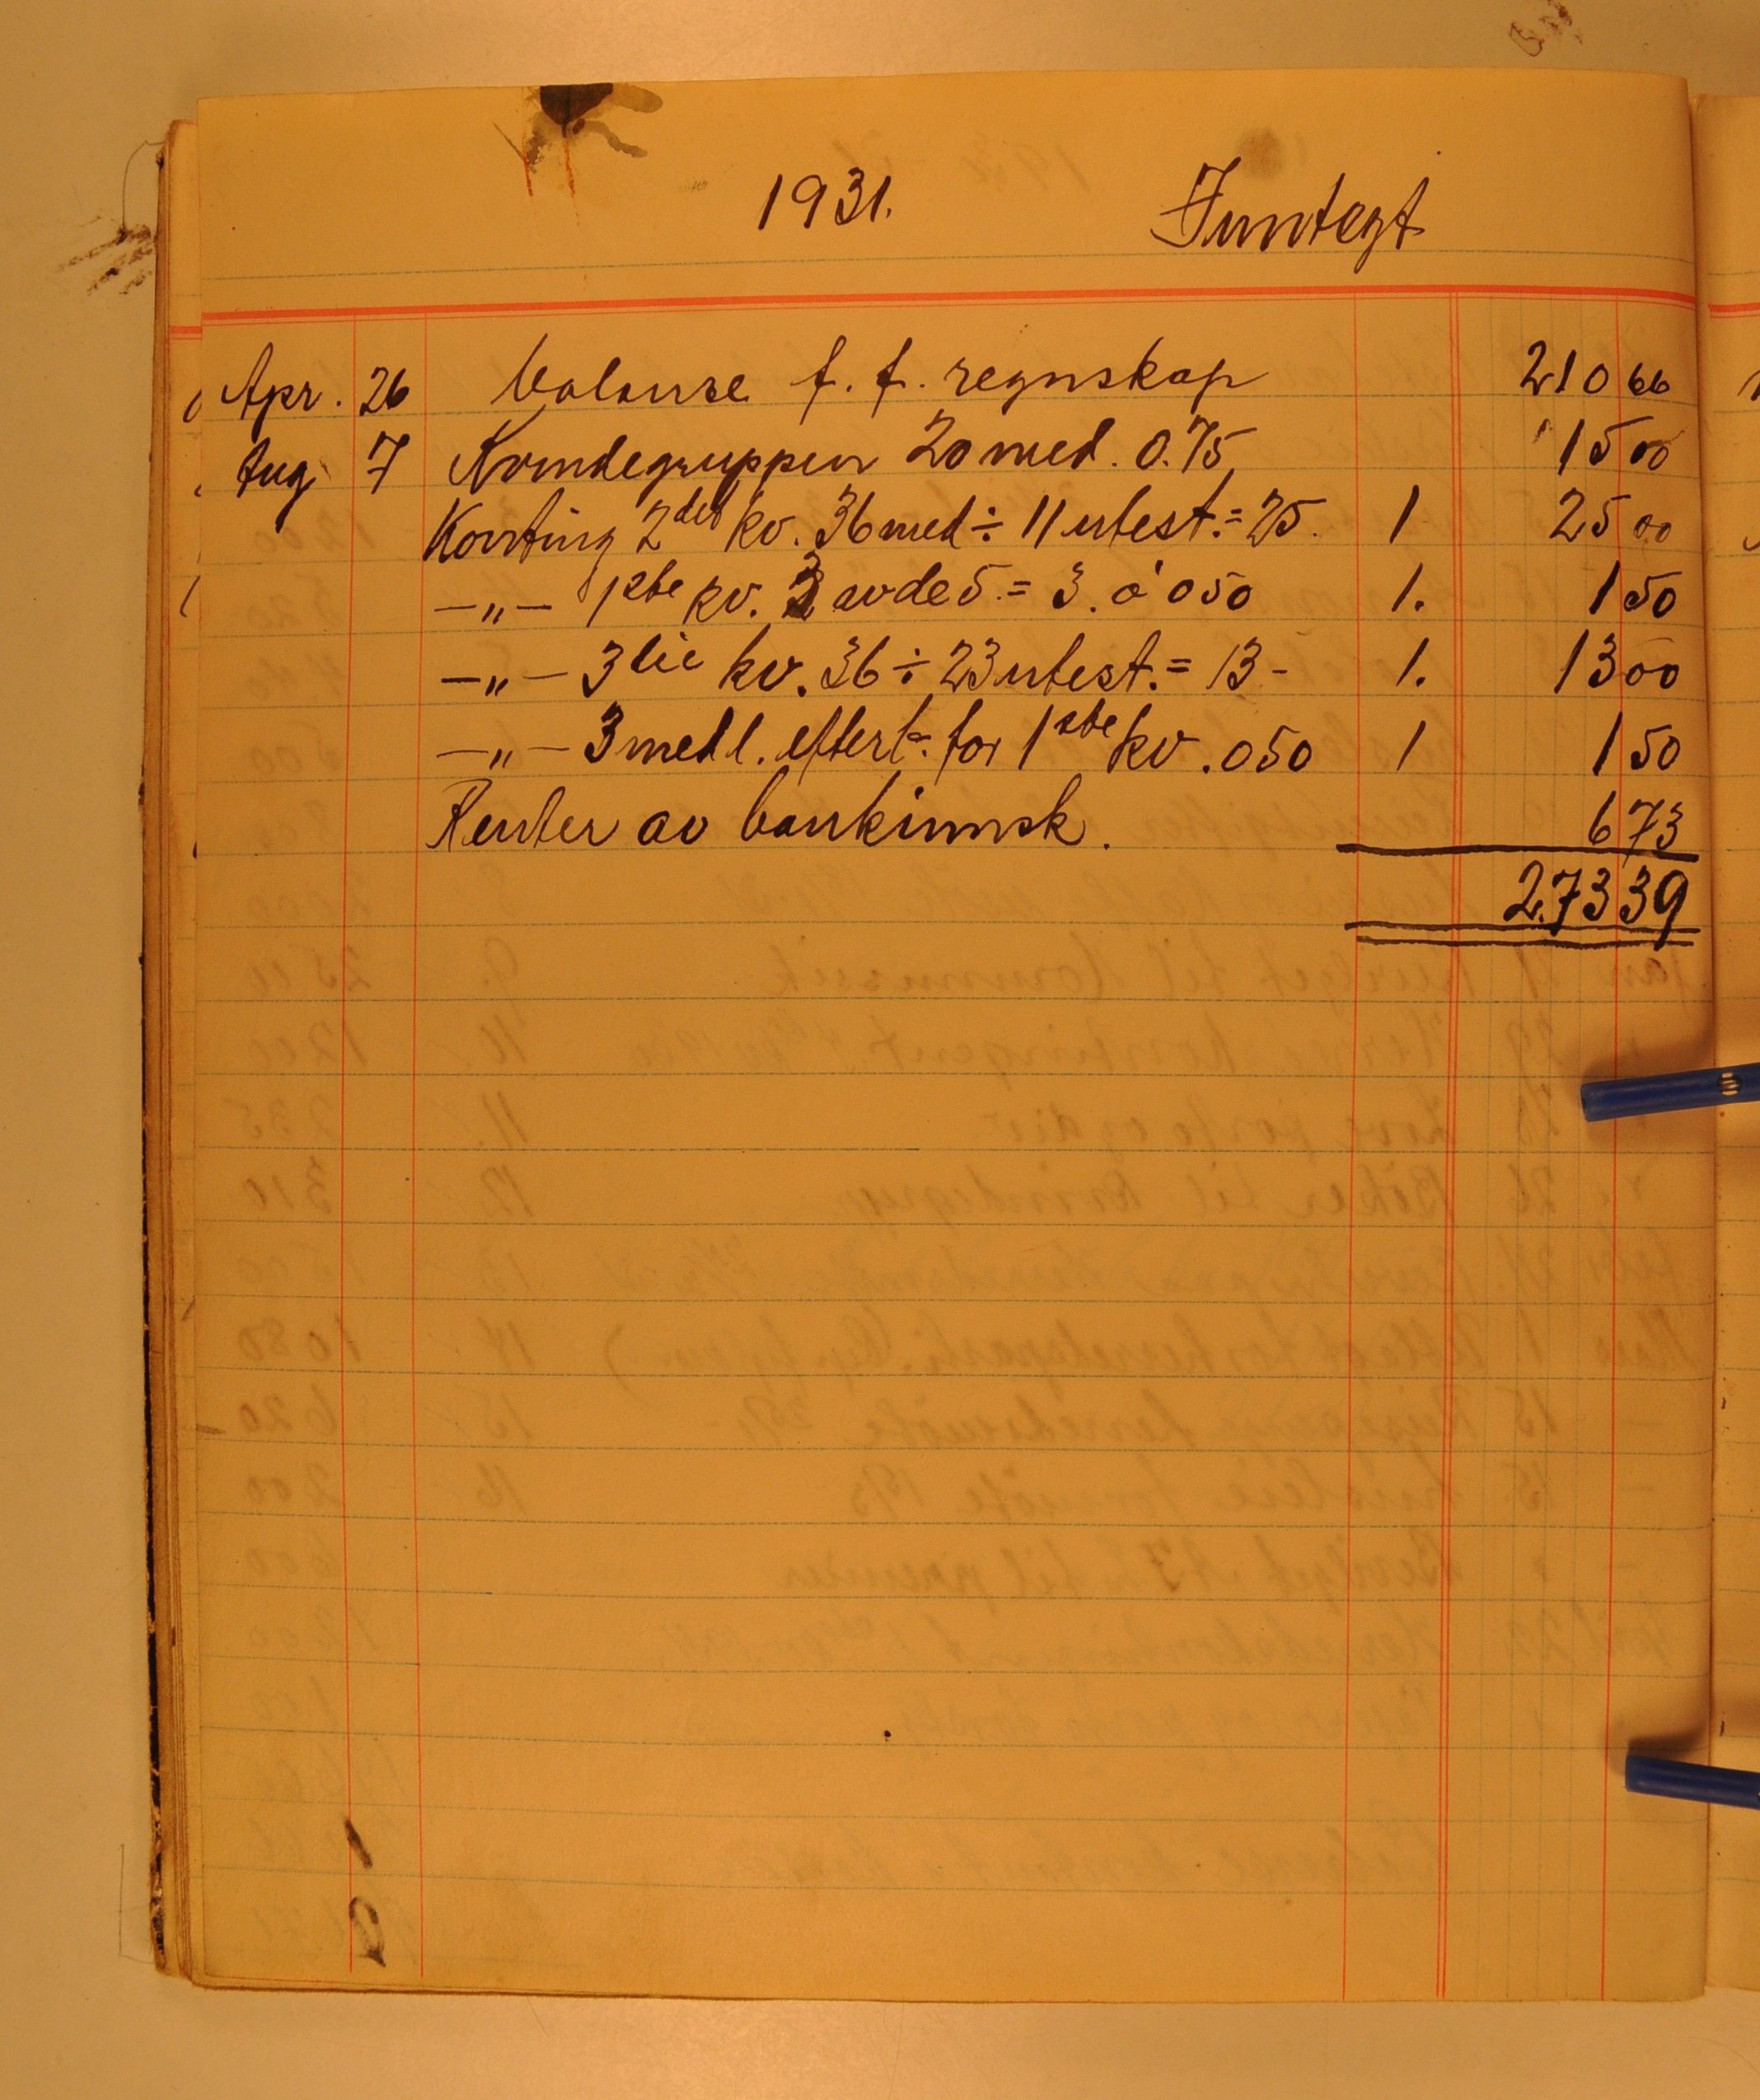 1931. Inntegt
Apr. 26 Balanse f. f. regnskap 210 66
Aug 7 Kvindegruppen 20 med. 0.75 15 00
Konting 2det kv. 36 med ÷ 11 utest. = 25. 1 25 00
—„— 1ste kv. 3 av de 5. = 3. á 050 1. 1 50
—„— 3die kv. 36 ÷ 23 utest. = 13 - 1. 13 00
—„— 3 medl. efterb. for 1ste kv. 050 1 1 50
Renter av bankinnsk. 6 73
273 39